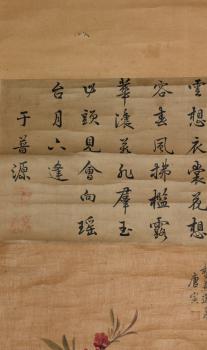 雲想衣裳花想
容春風拂檻露
華濃若非羣玉
山頭見會向瑶
台月下逢
于普源
唐寅